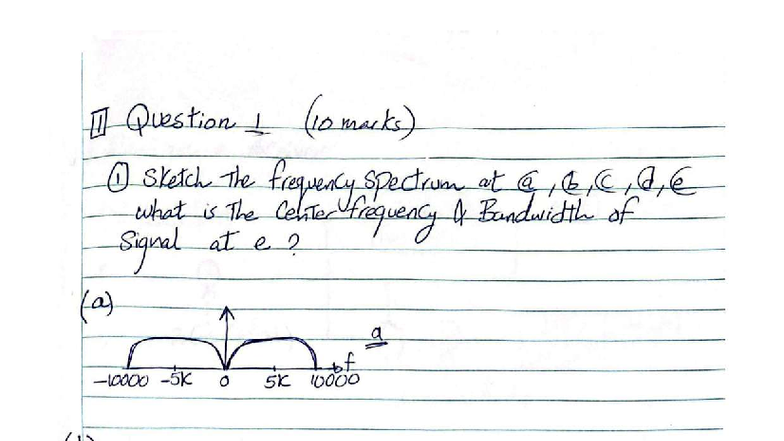 1 Question 1 (10 marks)
① Sketch The frequency spectrum at ⓐ, ⓑ, ⓒ, ⓓ, ⓔ
what is The Center frequency & Bandwidth of
Signal at e ?
(a)
a
f
-10000 -5K 0 5K 10000